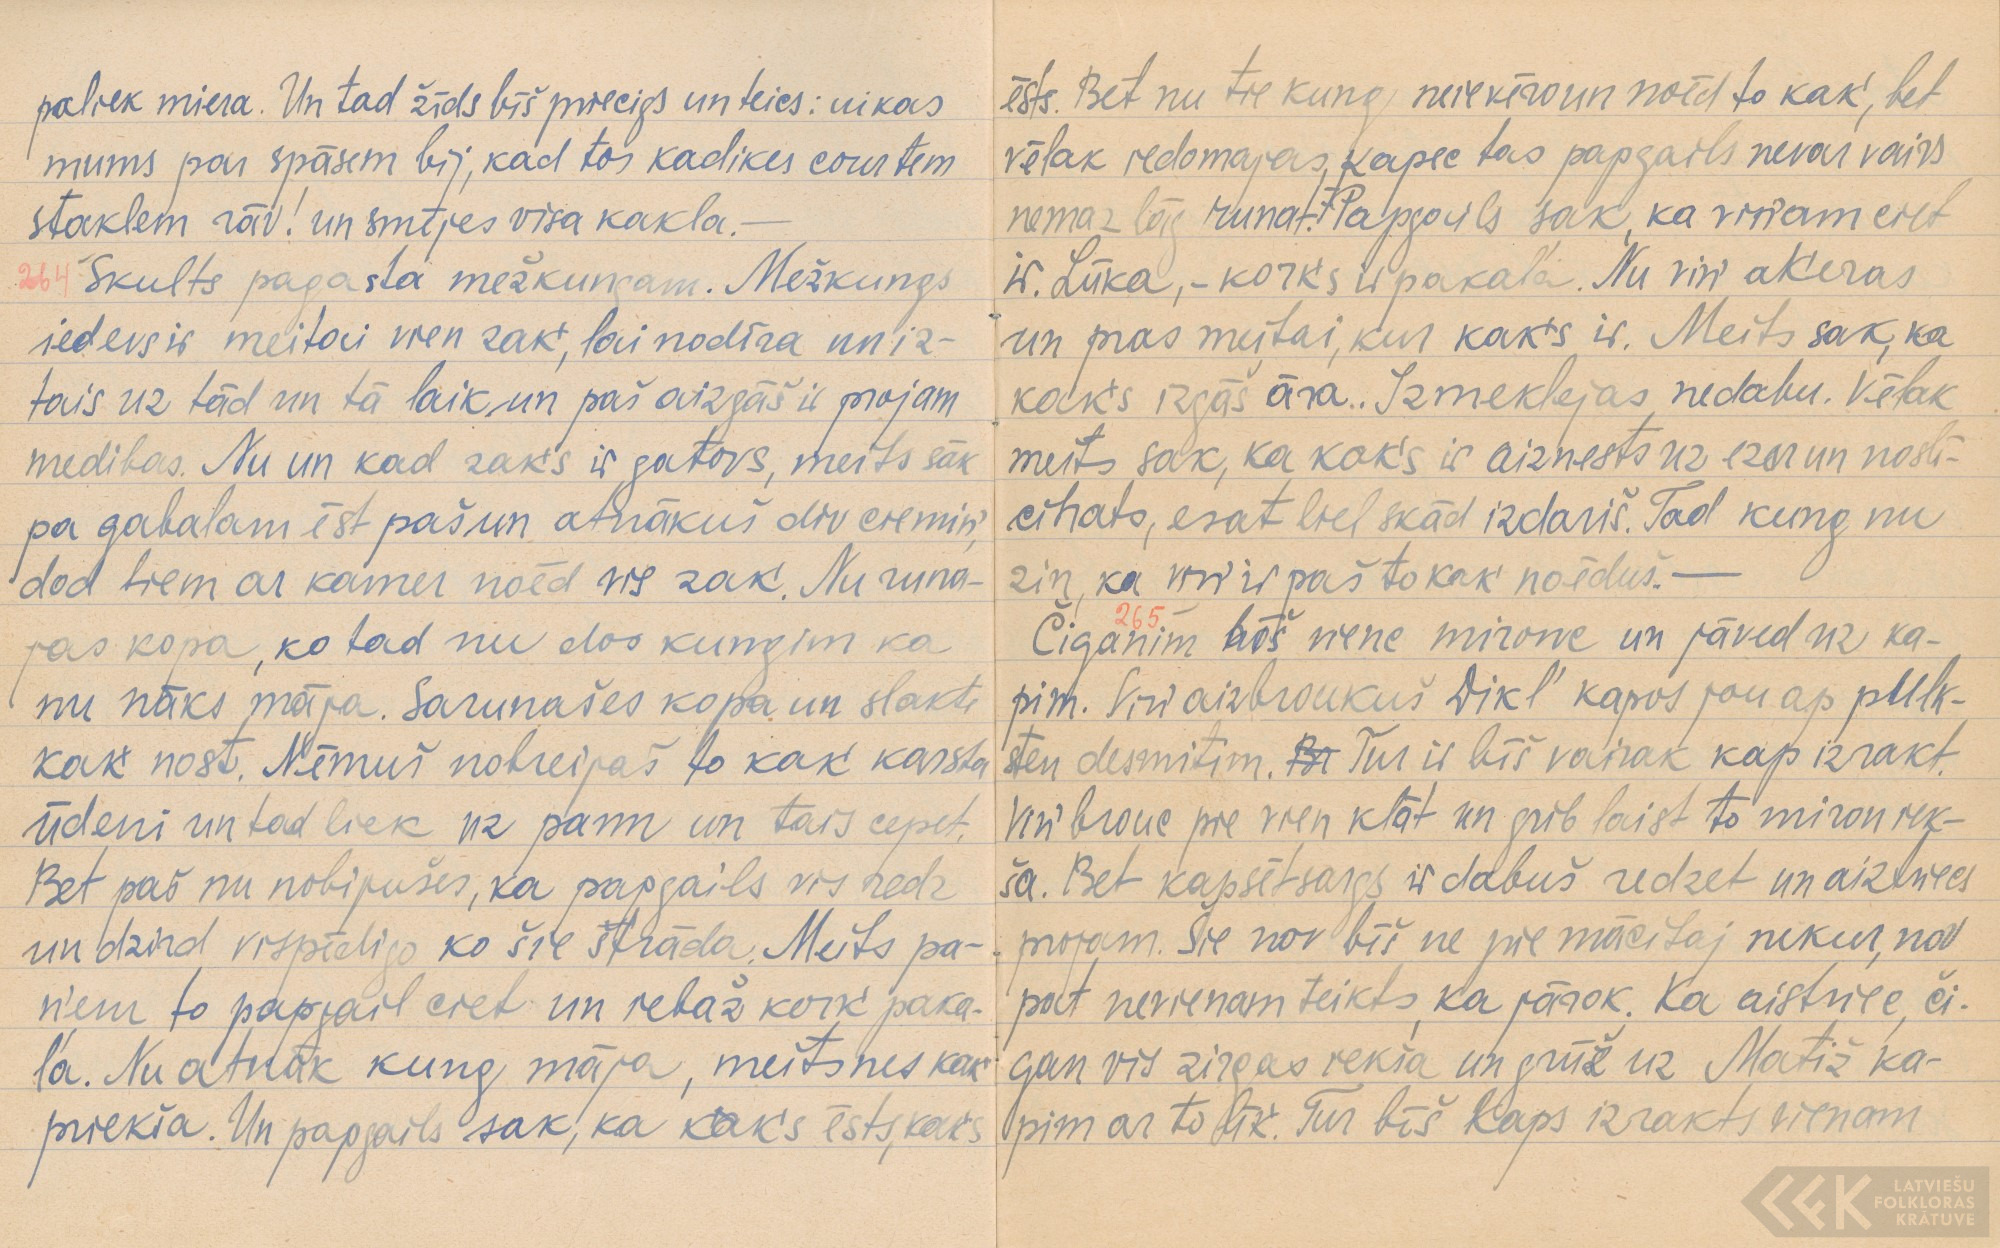 paliek miera. Un tad žīds bīš priecigs un teics: vikas
mums par spāsem bij, kad tos kadikes cour tem
staklem rāv! un smējes visa kakla.—
264 Skults pagasta mežkungam. Mežkungs
iedevs ir meitai vien zak', lai nodīra un iz-
tais uz tād un tā laik, un paš aizgāš ir projam
medibas. Nu un kad zak's ir gatavs, meits sāk
pa gabalam ēst paš un atnākuš div ciemiņ,
dod tiem ar kamer noēd vis zak'. Nu runa-
jas kopa, ko tad nu dos kungim ka
nu nāks māja. Sarunašes kopa un slakte
kak' nost. Nēmuš notreipaš to kak' karsta
ūdeni un tad liek uz pann un tais cepet.
Bet paš nu nobijušes, ka papgails vis redz
un dzird vispēdigo ko šie štrāda. Meits pa-
ņem to papgail ciet un iebaž kork' paka-
ļa. Nu atnāk kung māja, meits nes kak'
priekša. Un papgails sak, ka kak's ēsts, kak's
ēsts. Bet nu tie kung neievēro un noēd to kak', bet
vēlak iedomajas, kapec tas papgails nevar vairs
nemaz lāg runat. Papgails sak, ka viņam ciet
ir. Lūka, - kork's ir pakaļa. Nu viņ aķeras
un pras meitai, kur kak's ir. Meits sak, ka
kak's izgāš āra.. Izmeklejas, nedabu. Vēlak
meits sak, ka kak's ir aiznests uz ezer un noslī-
cinats, esat liel skād izdariš. Tad kung nu
zin, ka viņ ir paš to kak' noēduš.—
265
Čiganim bōš viene mirone un jāved uz ka-
pim. Viņ aizbroukuš Dikļ kapos jou ap pulk-
sten desmitim. Tur ir bīš vairak kap izrakt.
Viņ brouc pie vien klāt un grib laist to miron iek-
ša. Bet kapsētsargs ir dabuš redzet un aiztriecs
projam. Šie nov bīš ne pie mācitaj nekur, nav
pat nevienam teikts, ka jārok. Ka aistriec, či-
gan vis zirgas iekša un grūž uz Matiž ka-
pim ar to līk'. Tur bīš kaps izrakts vienam
LATVIEŠU
FOLKLORAS
KRĀTUVE